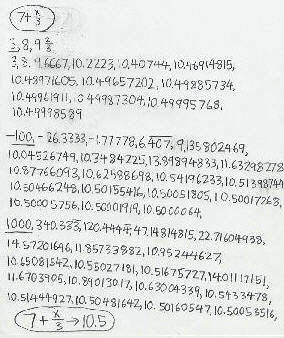 7+x/3
3, 8, 9 2/3
3, 8, 9.6667, 10.2223, 10.40744, 10.46914815,
10.48971605, 10.49657202, 10.49885734,
10.49961911, 10.49987304, 10.49995768,
10.49998589
-100, -26.3333, -1.77778, 6.407, 9.135802469,
10.04526749, 10.3484225, 13.89894833, 11.63298278
10.87766093, 10.62588698, 10.54196233, 10.51398744
10.50466248, 10.50155416, 10.50051805, 10.50017268,
10.50005756, 10.50001919, 10.5000064,
1000, 340.333, 120.4444, 47.14814815, 22.71604938,
14.57201646, 11.85733882, 10.95244627,
10.65081542, 10.55027181, 10.51675727, 14.01117151,
11.6703905, 10.89013017, 10.63004339, 10.5433478,
10.51444927, 10.50481642, 10.50160547, 10.50053516,
7+x/3→10.5